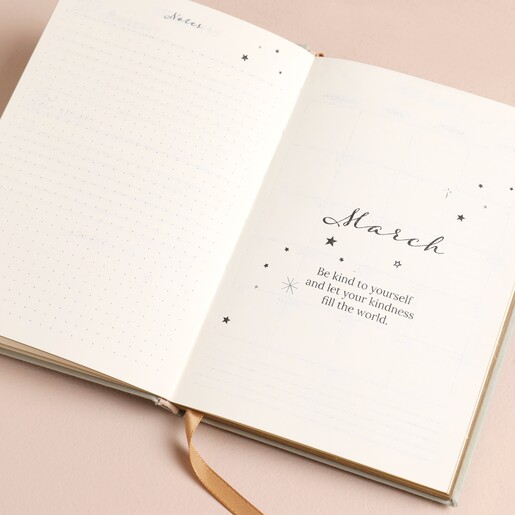 Notes
March
Be kind to yourself
and let your kindness
fill the world.